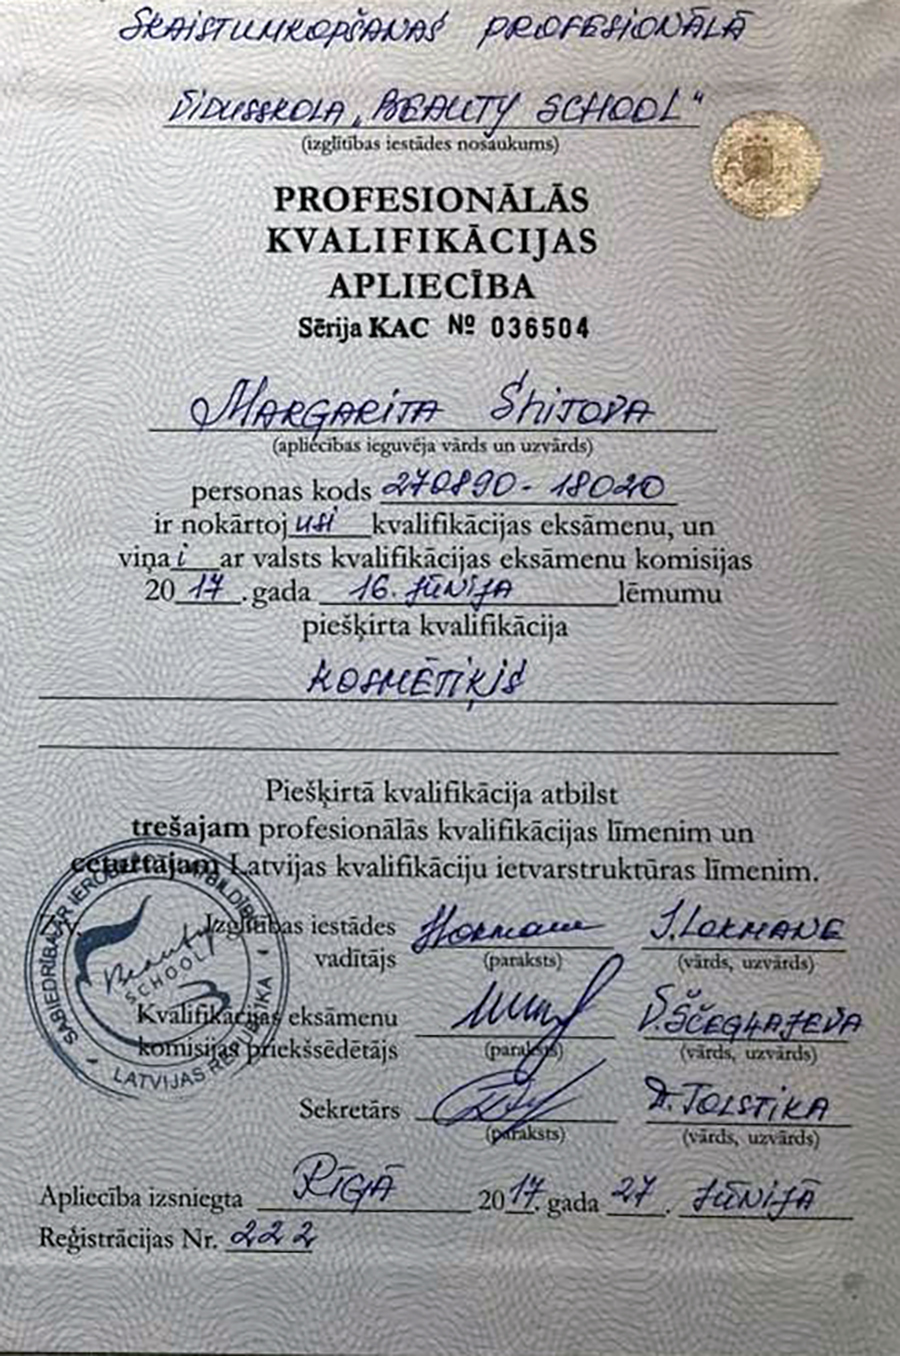 SKAISTUMKOPŠANAS PROFESIONĀLĀ
VIDUSSKOLA „BEAUTY SCHOOL"
(izglītības iestādes nosaukums)
PROFESIONĀLĀS
KVALIFIKĀCIJAS
APLIECĪBA
Sērija KAC Nº 036504
MARGARITA SHITOVA
(apliecības ieguvēja vārds un uzvārds)
personas kods 270890-18020
ir nokārtojusi kvalifikācijas eksāmenu, un
viņai ar valsts kvalifikācijas eksāmenu komisijas
2017. gada 16. JŪNIJA lēmumu
piešķirta kvalifikācija
KOSMĒTIĶIS
Piešķirtā kvalifikācija atbilst
trešajam profesionālās kvalifikācijas līmenim un
ceturtajam Latvijas kvalifikāciju ietvarstruktūras līmenim.
Z.v. Izglītības iestādes
vadītājs
(paraksts)
I. LOKMANE
(vārds, uzvārds)
Kvalifikācijas eksāmenu
komisijas priekšsēdētājs
(paraksts)
V. ŠČEGĻAJEVA
(vārds, uzvārds)
Sekretārs
(paraksts)
D. TOLSTIKA
(vārds, uzvārds)
SABIEDRĪBA AR IEROBEŽOTU ATBILDĪBU
Beauty
SCHOOL
LATVIJAS REPUBLIKA
Apliecība izsniegta RĪGĀ 2017. gada 27. JŪNIJĀ
Reģistrācijas Nr. 222